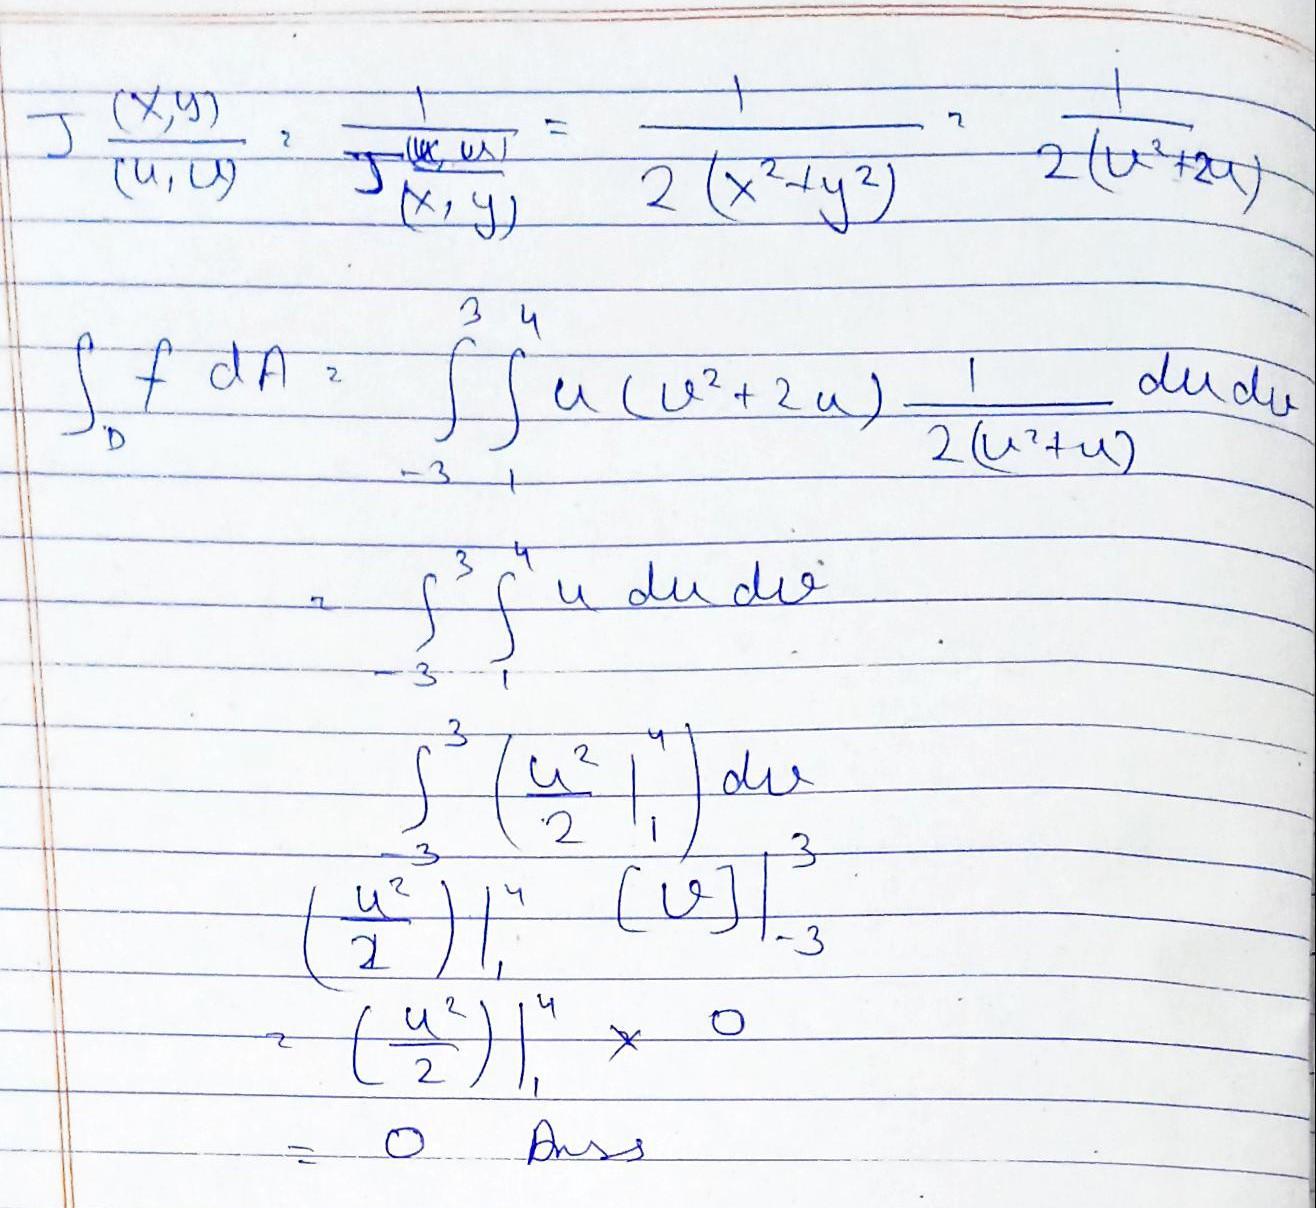 J (x,y)/(u,v) = 1/J (u,v)/(x,y) = 1/2(x²+y²) = 1/2(v²+2u)
∫_D f dA = ∫_{-3}^{3} ∫_{1}^{4} u (v²+2u) 1/2(v²+u) du dv
= ∫_{-3}^{3} ∫_{1}^{4} u du dv
∫_{-3}^{3} (u²/2 |_{1}^{4}) dv
(u²/2) |_{1}^{4} [v] |_{-3}^{3}
= (u²/2) |_{1}^{4} × 0
= 0 Anss